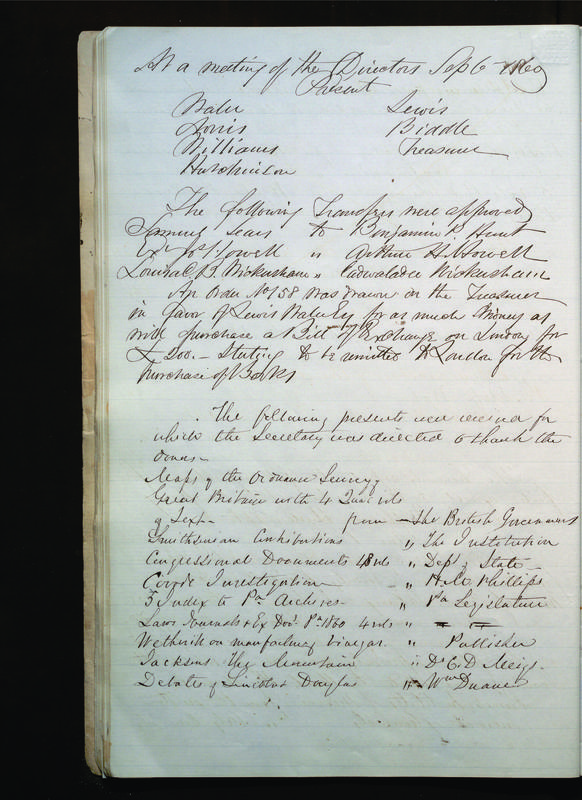 At a meeting of the Directors Sep 6 1860
Present
Waln Lewis
Norris Biddle
Williams Treasurer
Hutchinson
The following Transfers were approved
Sears to Benjamin P Hunt
Exr Jos Howell " Arthur H. Howell
B. Wickersham " Cadwalader Wickersham
An Order No 158 was drawn on the Treasurer
in favor of Lewis Waln Esq for as much Money as
will purchase a Bill of Exchange on London for
£ 200.- Sterling to be remitted to London for the
purchase of Books
The following presents were received for
which the Secretary was directed to thank the
donors -
Maps of the Ordnance Survey
Great Britain with 4 vols
of Text - from - The British Government
Smithsonian Contributions " The Institution
Congressional Documents 48 vols " Dept of State -
Investigation - " H. M. Phillips
3 Index to Pa Archives - " Pa Legislature
Laws Journals & Ex Docs. Pa 1860 4 vols " = =
on manufacturg vinegar. " Publisher
Jacksons The Mountain " Dr C. D. Meigs
Debates of Lincoln & Douglas " Wm Duane